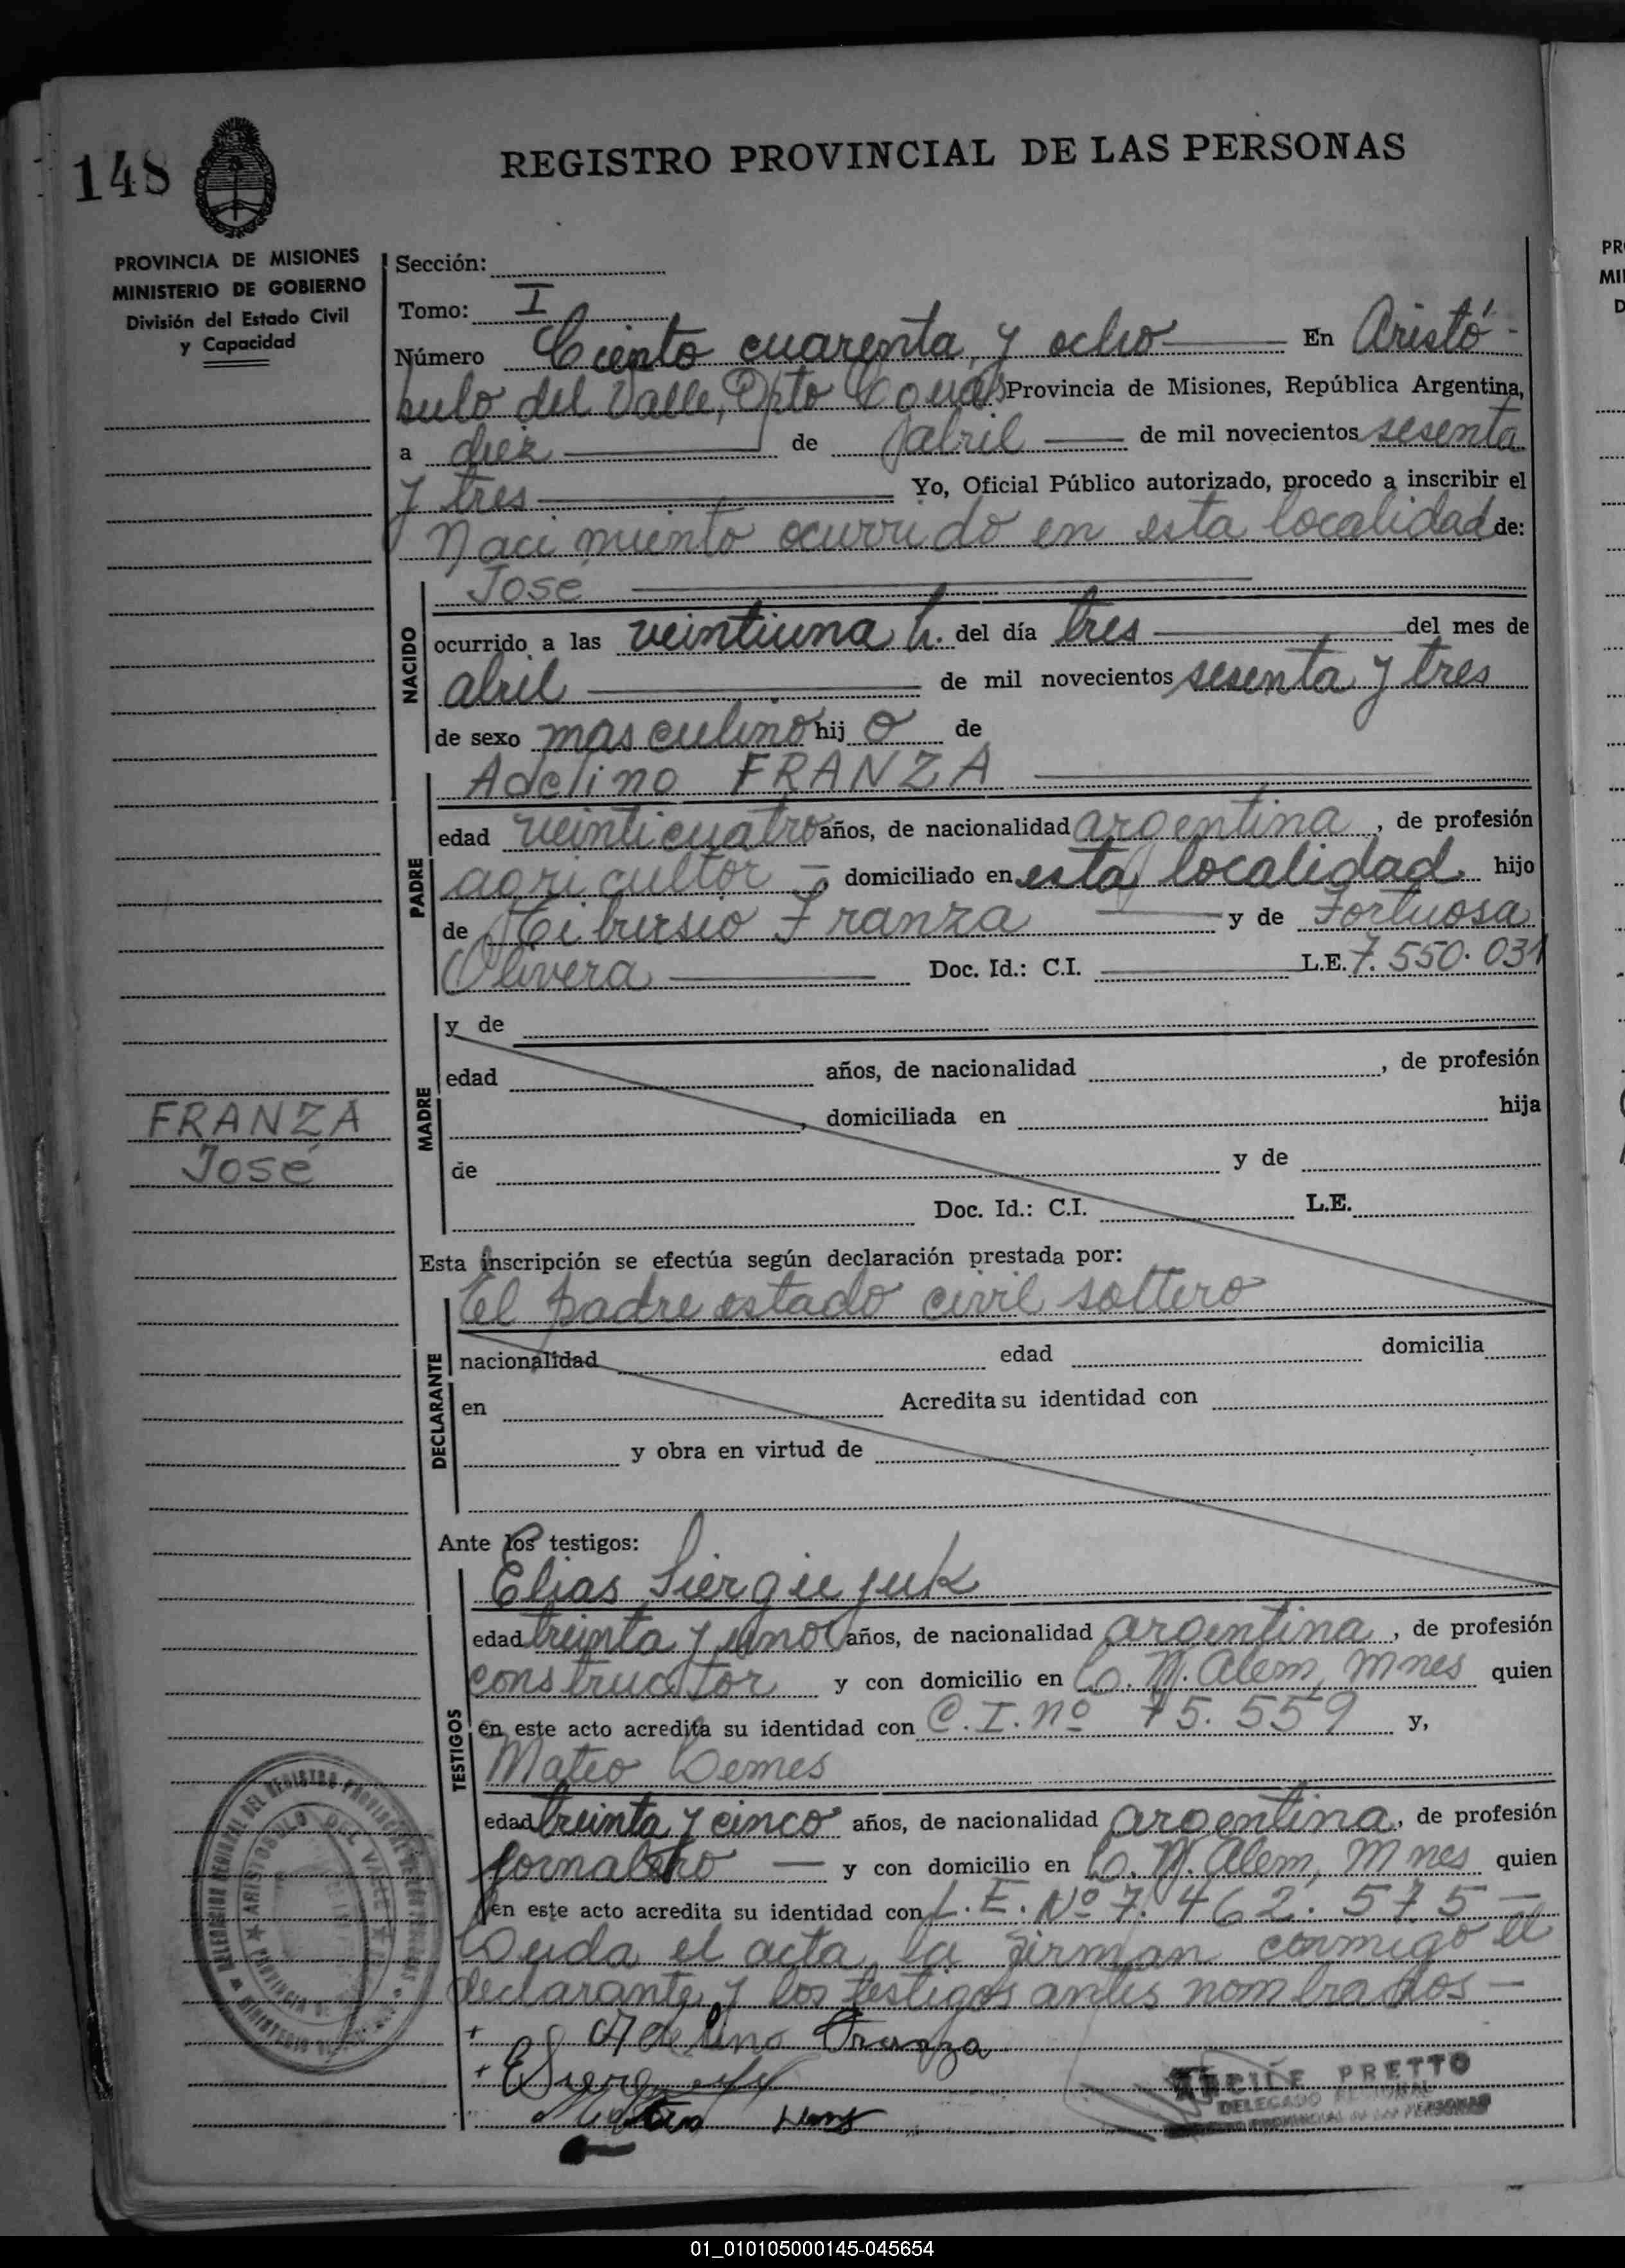 148
REGISTRO PROVINCIAL DE LAS PERSONAS
PROVINCIA DE MISIONES
MINISTERIO DE GOBIERNO
División del Estado Civil
y Capacidad
Sección:
Tomo: I
Número Ciento cuarenta y ocho En Aristó-
bulo del Valle, Dpto Cguás Provincia de Misiones, República Argentina,
a diez de abril de mil novecientos sesenta
y tres Yo, Oficial Público autorizado, procedo a inscribir el
Nacimiento ocurrido en esta localidad de:
NACIDO
José
ocurrido a las veintiuna h. del día tres del mes de
abril de mil novecientos sesenta y tres
de sexo masculino hij o de
PADRE
Adelino FRANZA
edad veinticuatro años, de nacionalidad argentina, de profesión
agricultor, domiciliado en esta localidad hijo
de Tibursio Franza y de Fortuosa
Olivera Doc. Id.: C.I. L.E. 7.550.031
MADRE
y de
edad años, de nacionalidad , de profesión
, domiciliada en hija
de y de
Doc. Id.: C.I. L.E.
FRANZA
José
Esta inscripción se efectúa según declaración prestada por:
DECLARANTE
El padre estado civil soltero
nacionalidad edad domicilia
en Acredita su identidad con
y obra en virtud de
Ante los testigos:
TESTIGOS
Elias Siergiejuk
edad treinta y uno años, de nacionalidad argentina, de profesión
constructor y con domicilio en L. N. Alem, Mnes quien
en este acto acredita su identidad con C.I. Nº 75.559 y,
Mateo Lemes
edad treinta y cinco años, de nacionalidad argentina, de profesión
jornalero y con domicilio en L. N. Alem, Mnes quien
en este acto acredita su identidad con L.E. Nº 7.462.575
Leida el acta, la firman conmigo el
declarante y los testigos antes nombrados
+ Adelino Franza
+
PRETTO
DELEGADO REGIONAL
PROVINCIAL DE LAS PERSONAS
DELEGACION REGIONAL DEL REGISTRO PROVINCIAL DE LAS PERSONAS
ARISTOBULO DEL VALLE
01_010105000145-045654